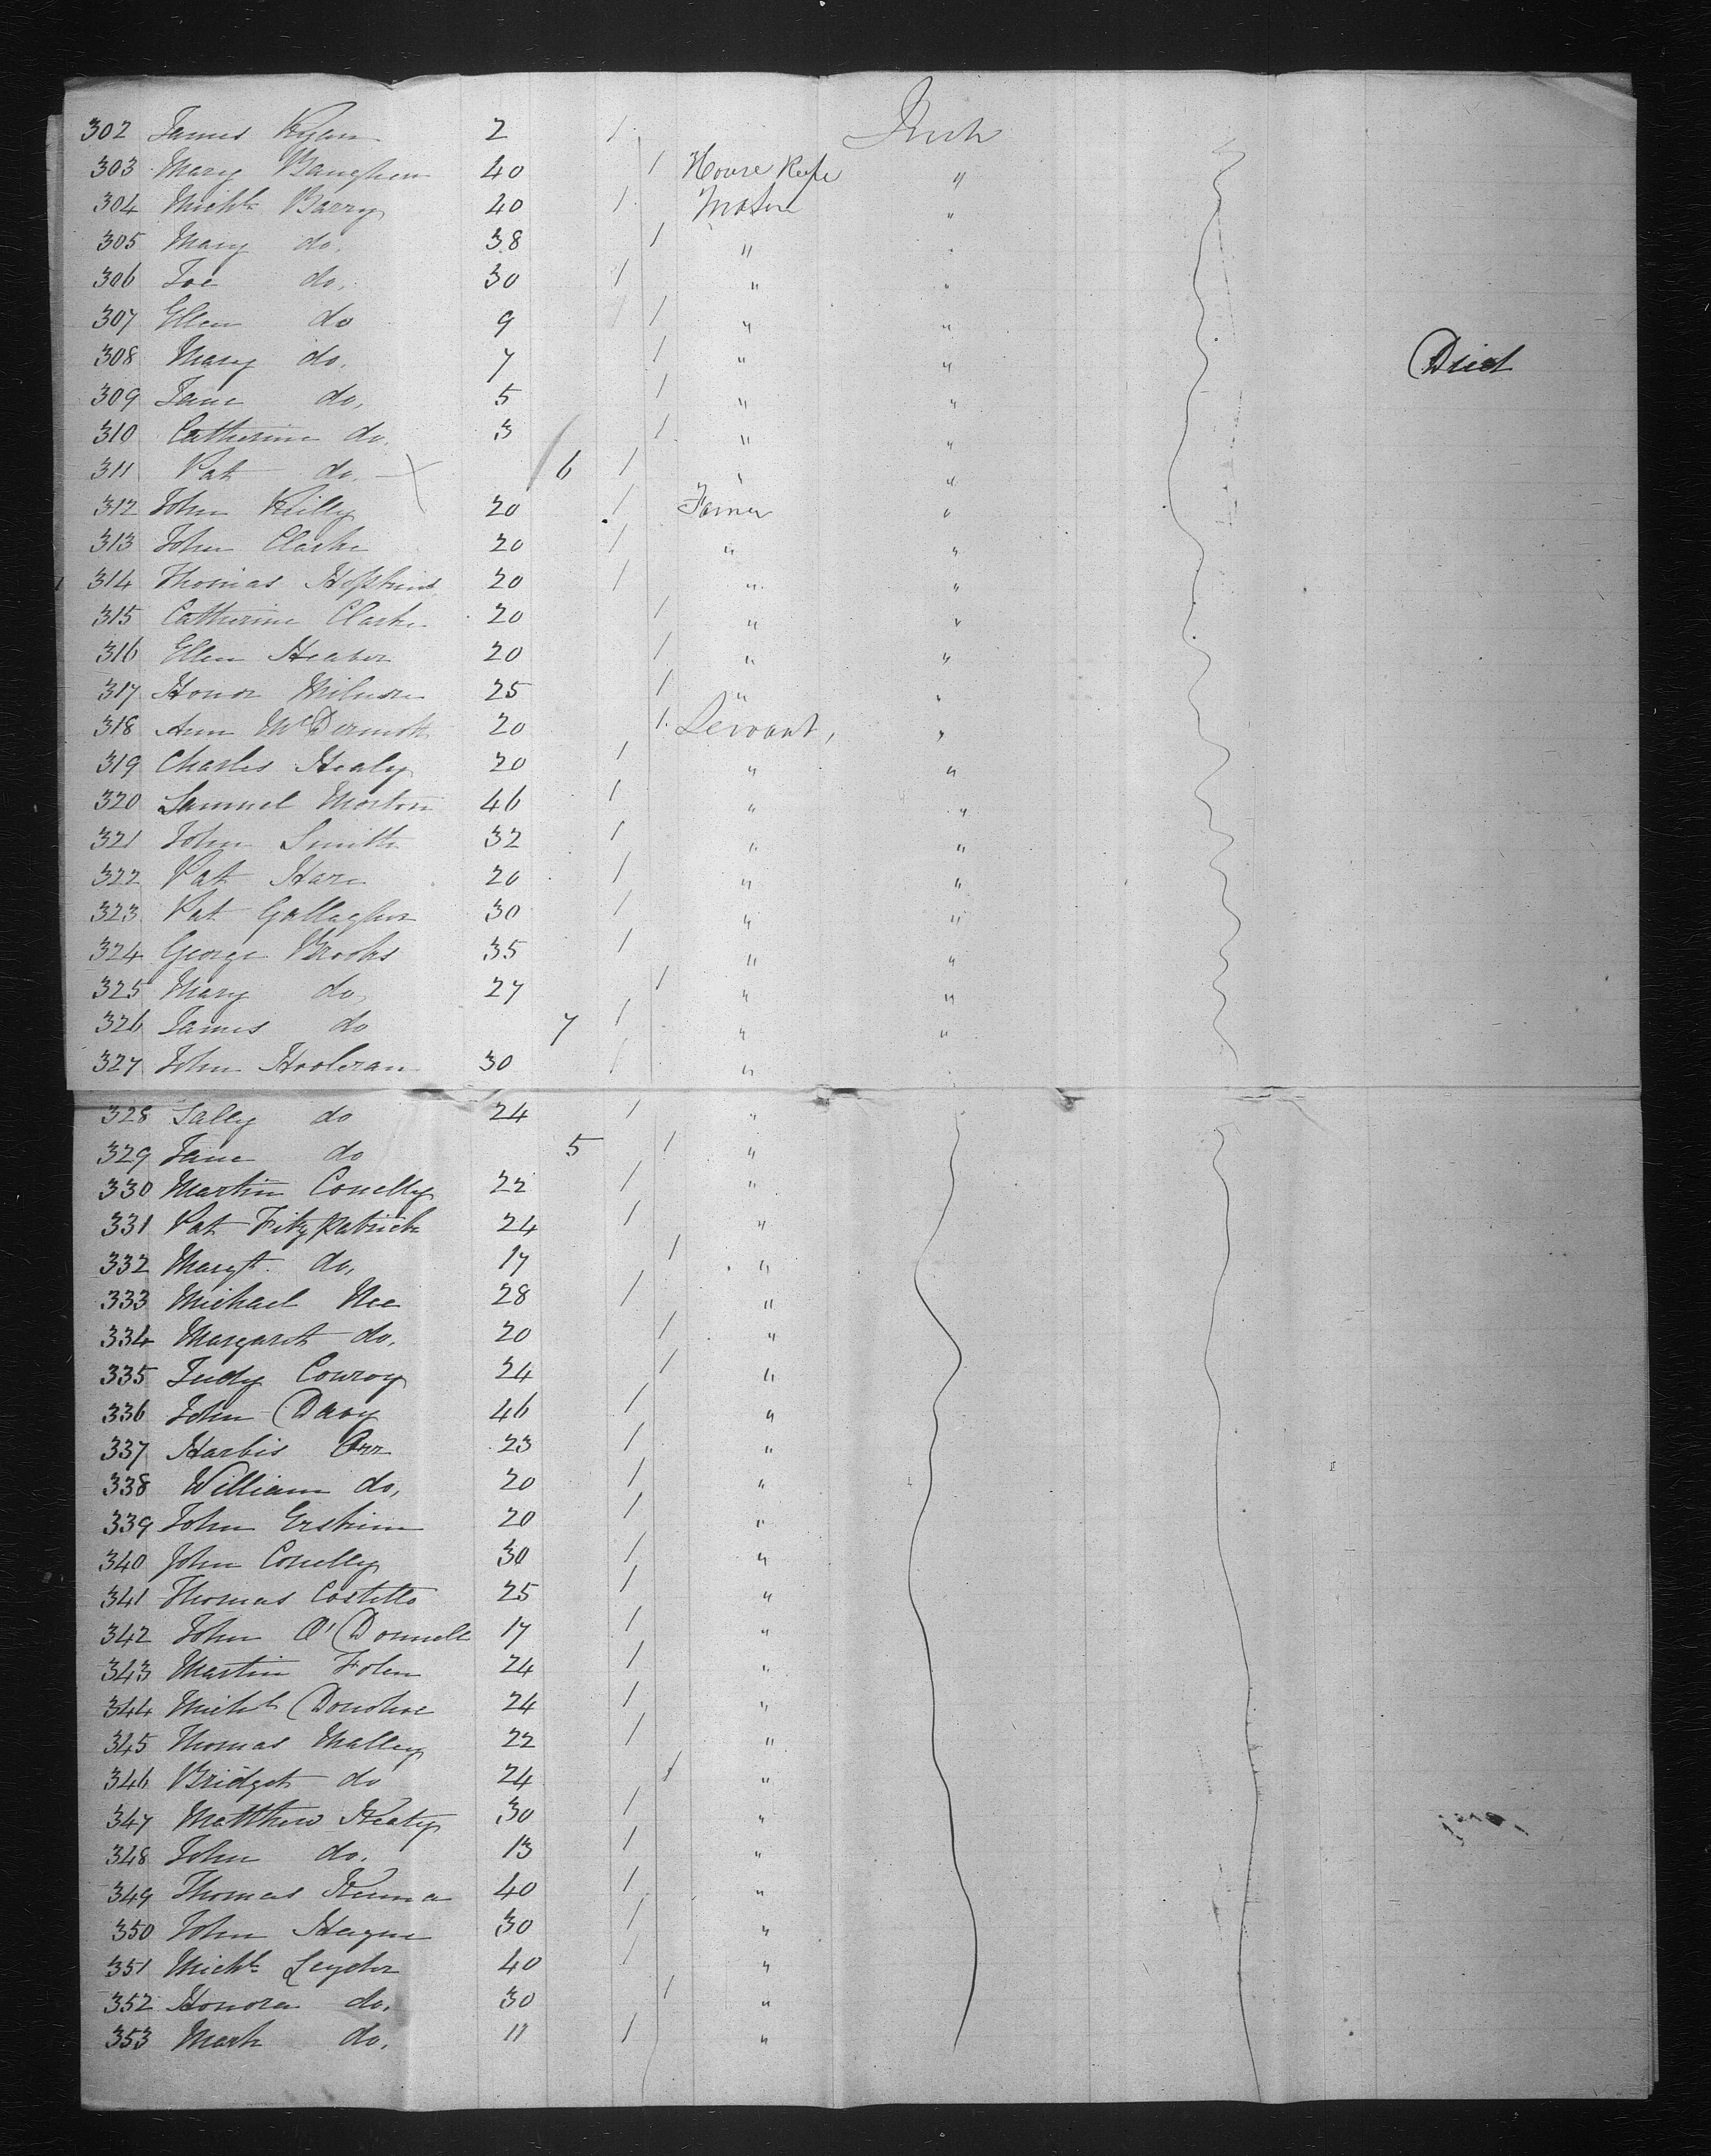 302 James Ryan 2 1 Irish
303 Mary Vaughen 40 1 House Keepr "
304 Michl. Barry 40 1 "
305 Mary do. 38 1 " "
306 Joe do. 30 1 " "
307 Ellen do 9 1 " "
308 Mary do. 7 1 " " Died
309 Jane do. 5 1 " "
310 Catherine do. 3 1 " "
311 Pat do. 6 1 " "
312 John Reilly 20 1 Farmer "
313 John Clarke 20 1 " "
314 Thomas Hopkins 20 1 " "
315 Catherine Clarke 20 1 " "
316 Ellen 20 1 " "
317 Honor 25 1 " "
318 Ann McDermott 20 1 Servant, "
319 Charles Healy 20 1 " "
320 Samuel Morton 46 1 " "
321 John Smith 32 1 " "
322 Pat Hare 20 1 " "
323 Pat Gallagher 30 1 " "
324 George Brooks 35 1 " "
325 Mary do. 27 1 " "
326 James do 7 1 " "
327 John Hooleran 30 1 "
328 Sally do 24 1 "
329 Jane do 5 1 "
330 Martin Conelly 22 1 "
331 Pat Fitzpatrick 24 1 "
332 Margt. do. 17 1 "
333 Michael Nee 28 1 "
334 Margaret do. 20 1 "
335 Judy Conroy 24 1 "
336 John Davy 46 1 "
337 Harbis Orr 23 1 "
338 William do. 20 1 "
339 John Erskine 20 1 "
340 John Conelly 30 1 "
341 Thomas Costello 25 1 "
342 John O'Donnell 17 1 "
343 Martin Folen 24 1 "
344 Michl Donohoe 24 1 "
345 Thomas Malley 22 1 "
346 Bridget do 24 1 "
347 Matthew Heaty 30 1 "
348 John do. 13 1 "
349 Thomas 40 1 "
350 John Hague 30 1 "
351 Michl. Leydon 40 1 "
352 Honora do. 30 1 "
353 Mark do. 11 1 "